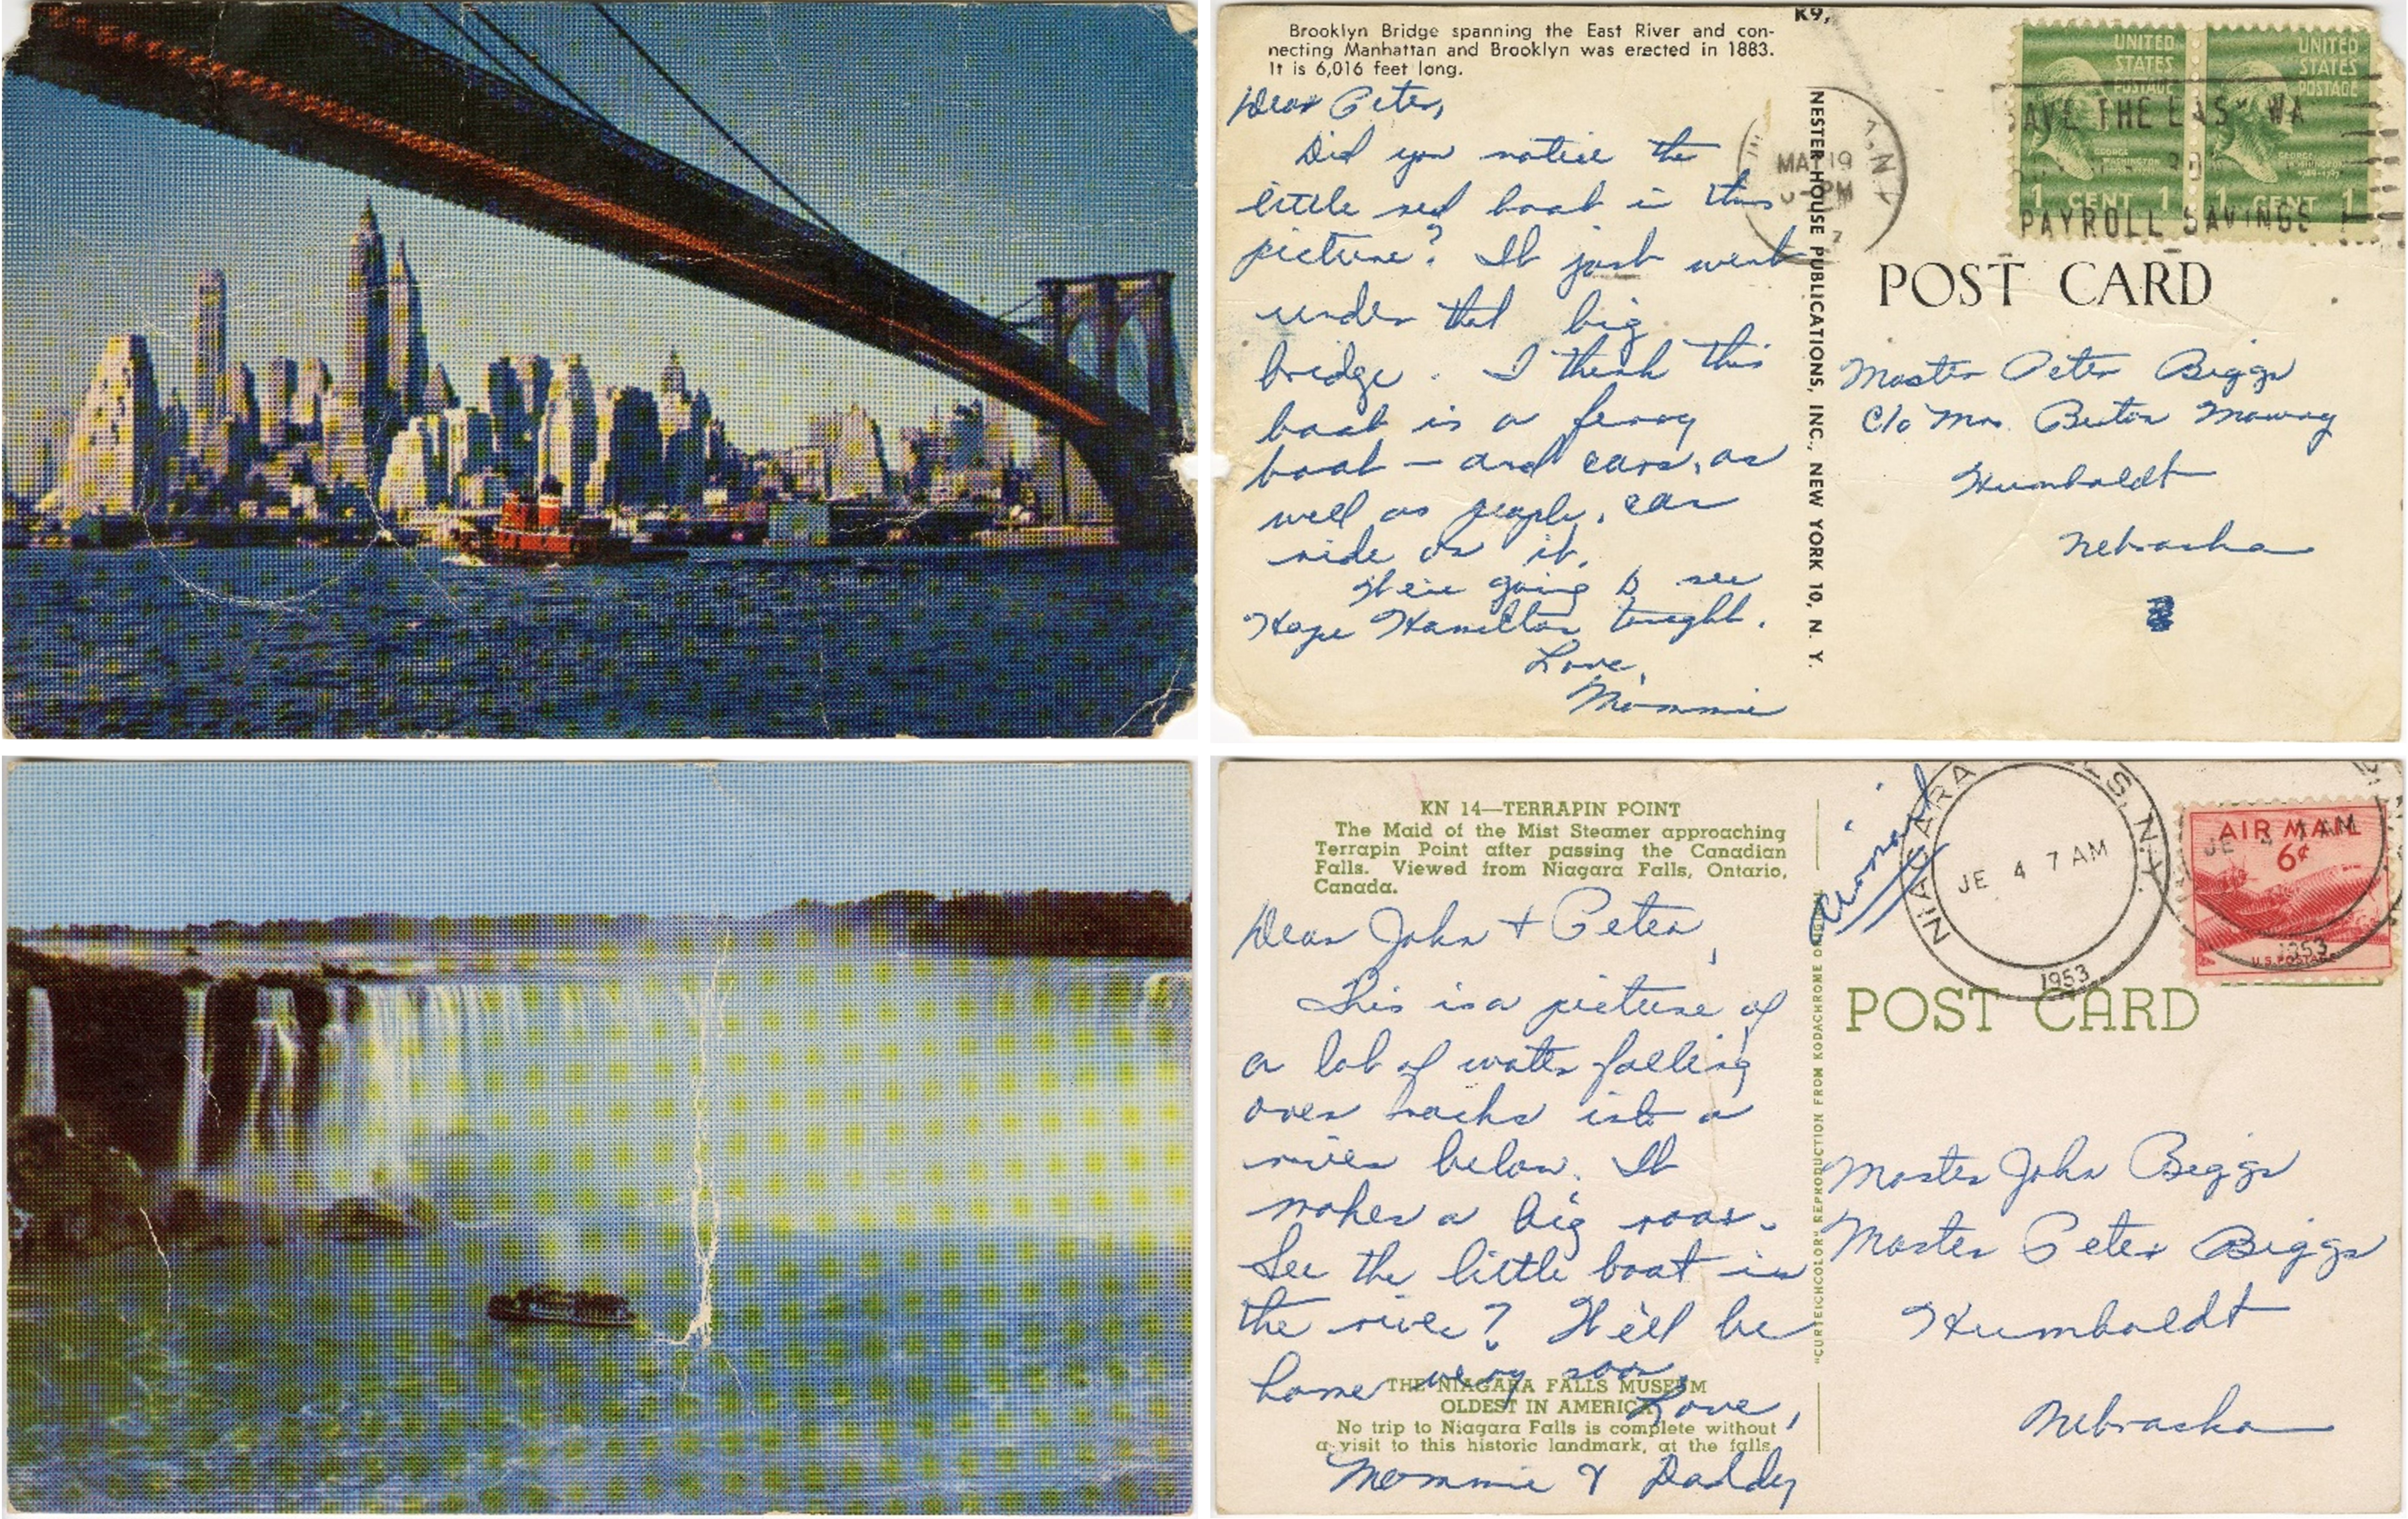 Brooklyn Bridge spanning the East River and con-
necting Manhattan and Brooklyn was erected in 1883.
It is 6,016 feet long.
K9,
Dear Peter,
Did you notice the
little red boat in this
picture? It just went
under that big
bridge. I think this
boat is a ferry
boat — and cars, as
well as people, can
ride on it.
We're going to see
Hope Hamilton tonight.
Love,
Mommie
NESTER HOUSE PUBLICATIONS, INC., NEW YORK 10, N. Y.
MAY 19
PM
N.Y.
UNITED
STATES
POSTAGE
GEORGE
WASHINGTON
1 CENT 1
UNITED
STATES
POSTAGE
GEORGE
WASHINGTON
1 CENT 1
AVE THE EASY WA
PAYROLL SAVINGS
POST CARD
Master Peter Biggs
c/o Mrs. Burton
Humboldt
Nebraska
KN 14—TERRAPIN POINT
The Maid of the Mist Steamer approaching
Terrapin Point after passing the Canadian
Falls. Viewed from Niagara Falls, Ontario,
Canada.
Dear John + Peter,
This is a picture of
a lot of water falling
over rocks into a
river below. It
makes a big roar.
See the little boat in
the river? We'll be
home very soon.
Love,
Mommie & Daddy
THE NIAGARA FALLS MUSEUM
OLDEST IN AMERICA
No trip to Niagara Falls is complete without
a visit to this historic landmark, at the falls.
"CURTEICHCOLOR" REPRODUCTION FROM KODACHROME ORIGINAL
airmail
NIAGARA LS, N.Y.
JE 4 7 AM
1953
AIR MAIL
6¢
U.S. POSTAGE
JE 4 7 AM
1953
POST CARD
Master John Biggs
Master Peter Biggs
Humboldt
Nebraska